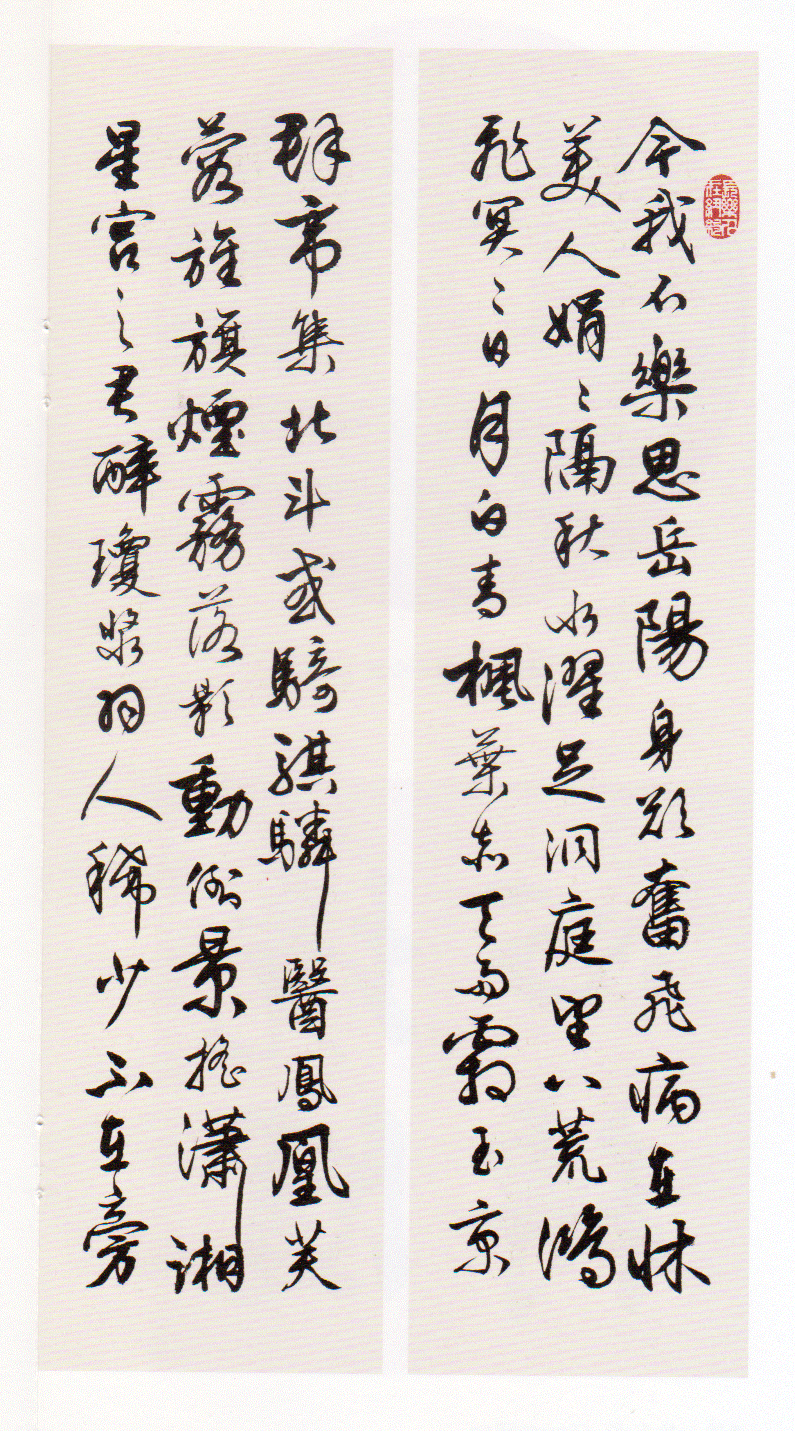 今我不樂思岳陽身欲奮飛病在床
美人娟〻隔秋水濯足洞庭望八荒鴻
飛冥〻日月白青楓葉赤天雨霜玉京
群帝集北斗或騎騏驎翳鳳凰芙
蓉旌旗煙霧落影動倒景搖瀟湘
星宮之君醉瓊漿羽人稀少不在旁